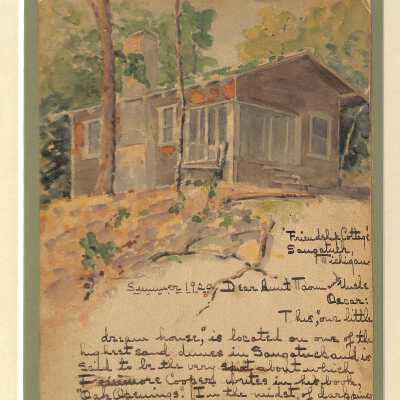 "Friendship Cottage"
Saugatuck,
Michigan
Summer 1929, Dear Aunt Naomi & Uncle
Oscar:
This, "our little
dream house," is located on one of the
highest sand dunes in Saugatuck and is
said to be the very spot about which
Fennimore Cooper writes in his book,
"Oak Openings." In the midst of dark pines